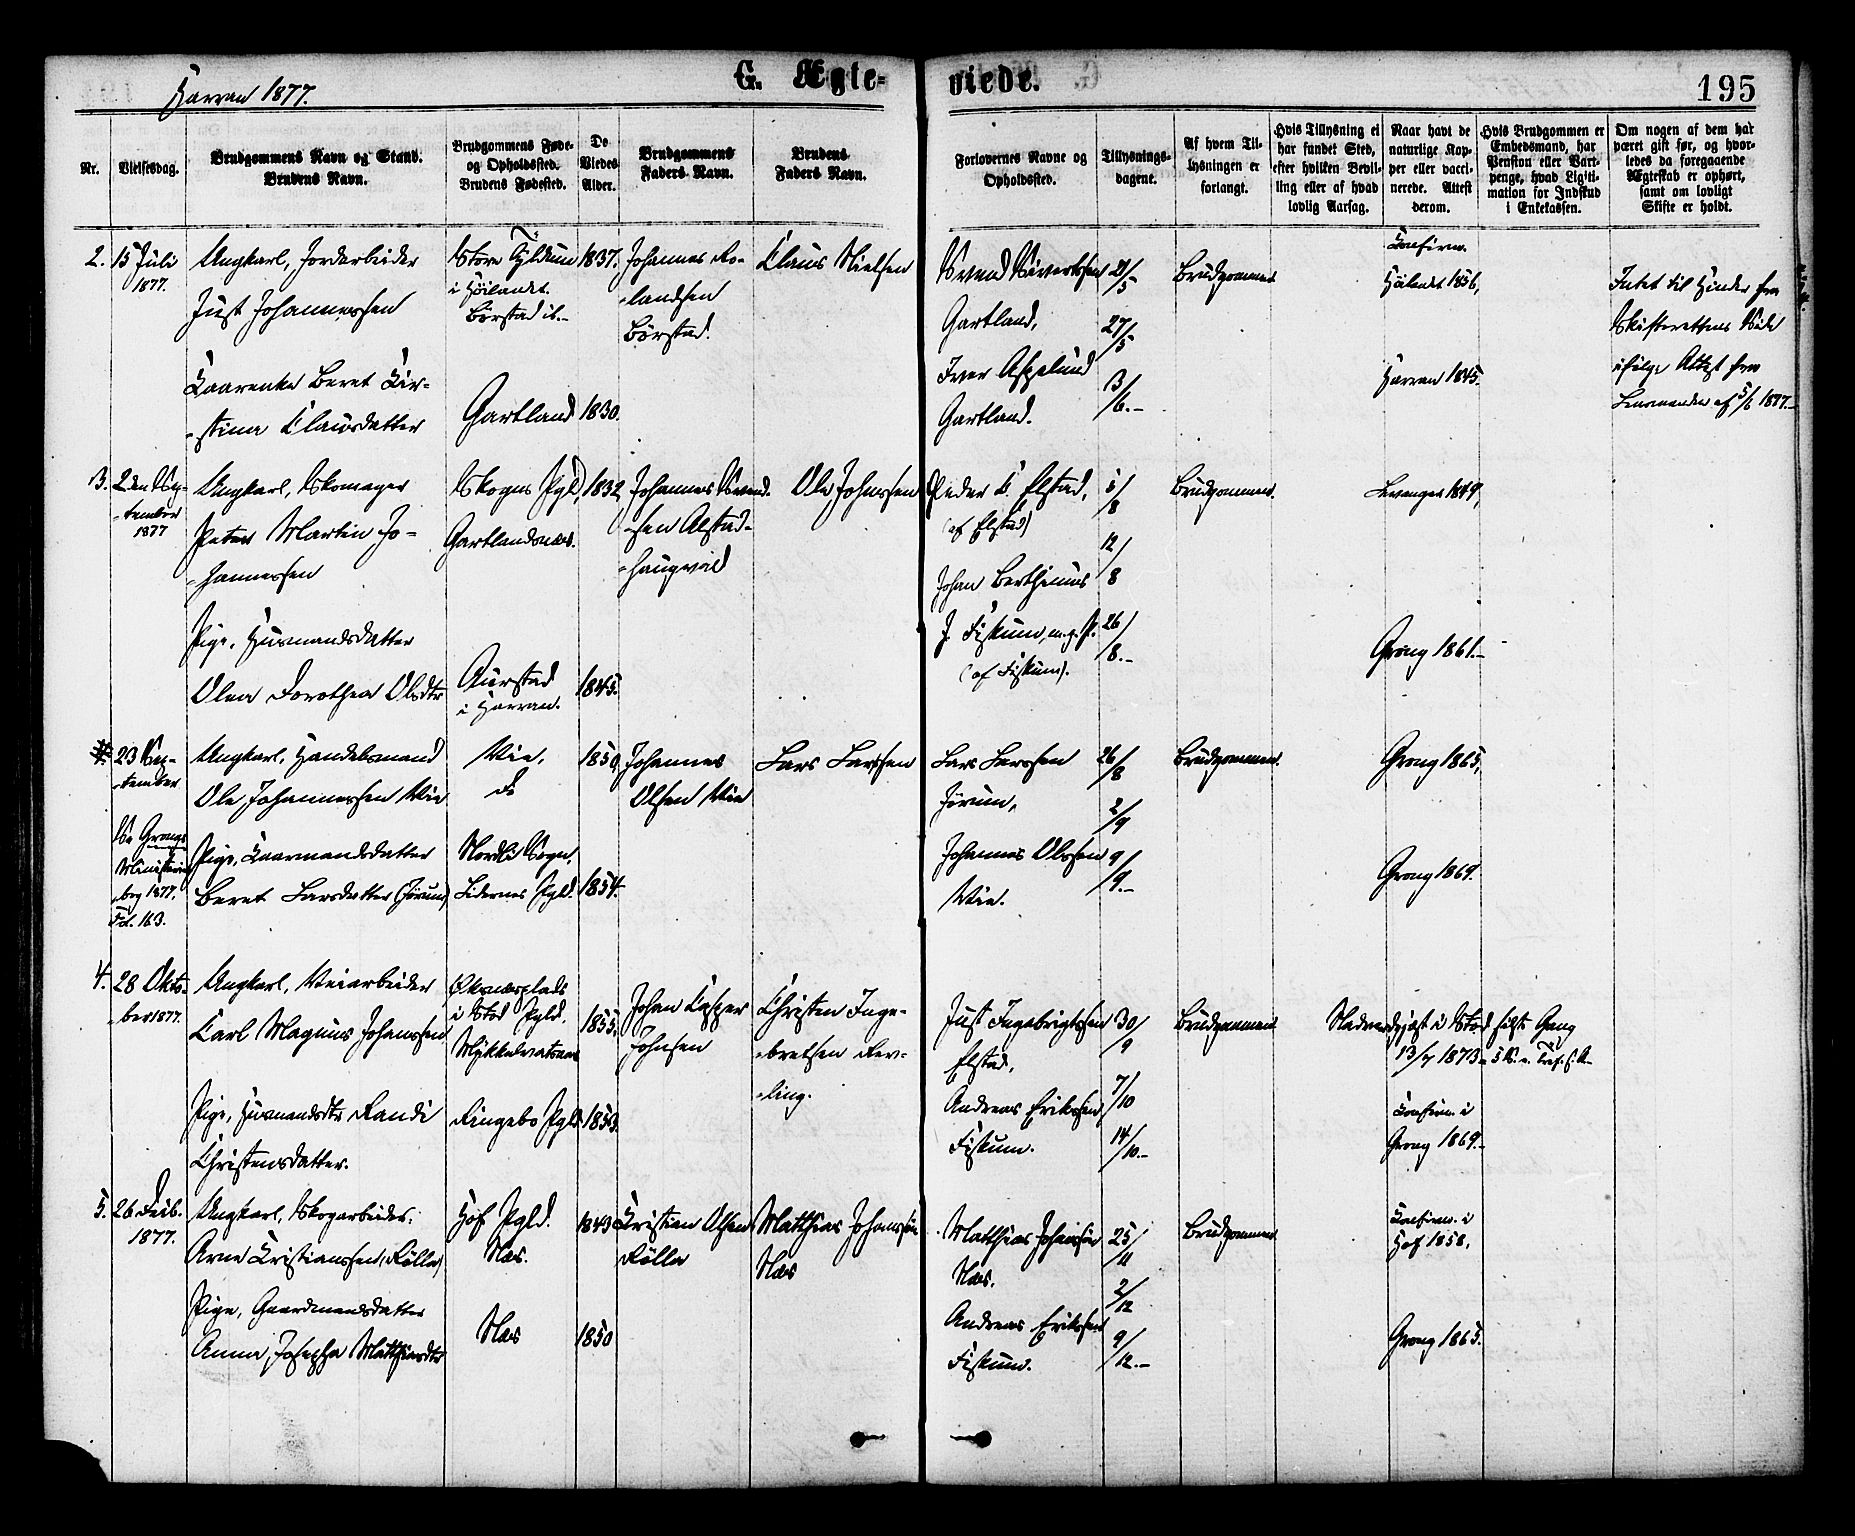 Harran 1877.
G. Ægte-
viede.
195
Nr.
Vielsesdag.
Brudgommens Navn og Stand.
Brudens Navn.
Brudgommens Føde-
og Opholdssted.
Brudens Fødested.
De
Viedes
Alder.
Brudgommens
Faders Navn.
Brudens
Faders Navn.
Forlovernes Navne og
Opholdssted.
Tillysnings-
dagene.
Af hvem Til-
lysningen er
forlangt.
Hvis Tillysning ei
har fundet Sted,
efter hvilken Bevil-
ling eller af hvad
lovlig Aarsag.
Naar havt de
naturlige Kop-
per eller vacci-
nerede. Attest
derom.
Hvis Brudgommen er
Embedsmand, har
Pension eller Vart-
penge, hvad Ligiti-
mation for Indskud
i Enkekassen.
Om nogen af dem har
været gift før, og hvor-
ledes da foregaaende
Ægteskab er ophørt,
samt om lovligt
Skifte er holdt.
2.
15 Juli
1877.
Ungkarl, Jordarbeider
Just Johannessen
Kaarenke Beret Kir-
-stina Clausdatter
Store Gyldum
i Höilandet
Börstad ib.-
Gartland
1837.
1830.
Johannes Ro-
-landsen
Börstad.
Claus Nielsen
Svend Sivertssen
Gartland,
Iver Aspelund
Gartland.
21/5
27/5
3/6.-
Brudgommen
Confirm.
Höilandet 1856,
Harran 1845.
Intet til Hinder fra
Skifterettens Side
ifølge Attest fra
Lensmanden af 5/6 1877.-
3.
2den Sep-
-tember
1877
Ungkarl, Skomager
Peter Martin Jo-
-hannessen
Pige, Husmandsdatter
Olea Dorothea Olsdtr
Skogns Pgld,
Gartlandsnæs.
Aurstad
i Harran.
1832,
1845.
Johannes Svend-
-sen Alstad-
-haugvald
Ole Johnssen
Peder C. Elstad,
(af Elstad)
Johan Berthinus
J. Fiskum, m.g.P.
(af Fiskum).
5/8
12/8
26/8.-
Brudgommen.
Levanger 1849,
Grong 1861.-
4.
23 Sep-
-tember
Se Grongs
Ministerial
-bog 1877,
Fol. 163.
Ungkarl, Handelsmand
Ole Johannessen Vie
Pige, Gaarmandsdatter
Beret Larsdatter (Jörum)
Vie,
do
Nordli Sogn,
Lidernes Pgld.
1850,
1854.
Johannes
Olsen Vie
Lars Larssen
Lars Larssen
Jörum,
Johannes Olssen
Vie.
26/8
2/9
9/9.-
Brudgommen.
Grong 1865,
Grong 1869.
4.
28 Okto-
-ber 1877.
Ungkarl, Veiarbeider
Carl Magnus Johanssen
Pige, Husmandsdtr Randi
Christensdatter.
Øksnæsplads
i Stod Pgld,
Mökkelvatnes
Ringebo Pgld
1855,
1853.
Johan Casper
Johnsen
Christen Inge-
-bretsen Rev-
-ling.
Just Ingebrigtssen
Elstad,
Andreas Erikssen
Fiskum.
30/9
7/10
14/10.-
Brudgommen
Nadverdgjæst i Stod sidste Gang
Confirm. i
Grong 1869.-
5.
26 Decb.
1877.
Ungkarl, Skogarbeider,
Arne Kristianssen (Rölla)
Pige, Gaardmandsdatter
Anna Josepha Matthiasdtr
Hof Pgld.
Næs.
Næs
1843
1850
Kristian Olsen
Rölla
Matthias Johanssön
Næs
Matthias Johanssön
Næs.
Andreas Erikssen
Fiskum.
25/11
2/12
9/12.-
Brudgommen
Confirm. i
Hof 1858,
Grong 1865.